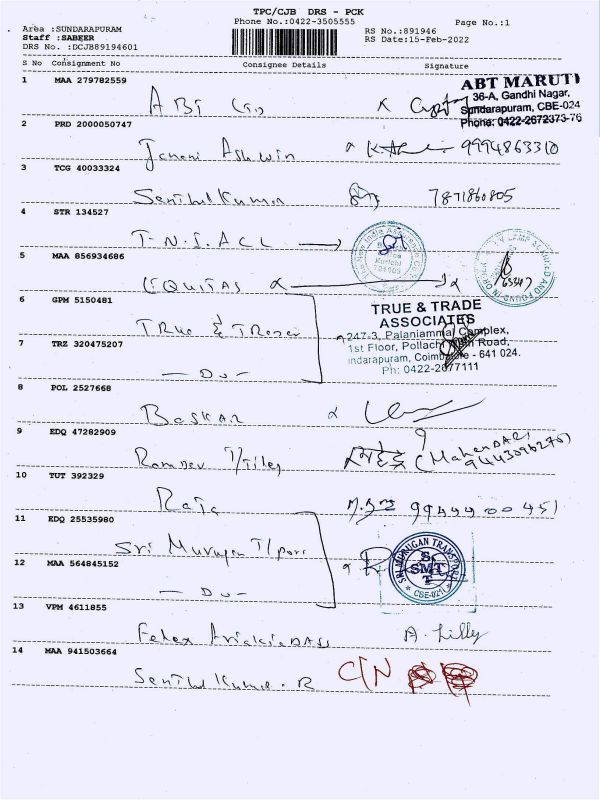 TPC/CJB DRS - PCK
Phone No.:0422-3505555
Page No.:1
Area :SUNDARAPURAM
Staff :SABEER
DRS No. :DCJB89194601
RS No.:891946
RS Date:15-Feb-2022
S No Consignment No Consignee Details Signature
1 MAA 279782559
ABT MARUTI
36-A, Gandhi Nagar,
Sundarapuram, CBE-024
Phone: 0422-2672373-76
ABT
2 PRD 2000050747
Janani Ashwin 9994863310
3 TCG 40033324
Senthil Kumar 7871860805
4 STR 134527
T.N.I.A.C.L
The New India Assurance
5 MAA 856934686
EQUITAS
6 GPM 5150481
TRUE & TRADE
ASSOCIATES
247-3, Palaniammal Complex,
1st Floor, Pollachi Main Road,
Sundarapuram, Coimbatore - 641 024.
Ph: 0422-2677111
True & Trade
7 TRZ 320475207
— Do —
8 POL 2527668
BASKAR
9 EDQ 47282909
Ramdev T/Tiles
10 TUT 392329
Raja
11 EDQ 25535980
Sri Murugan T/port
SRI MURUGAN TRANSPORT
SMT
CBE-021
12 MAA 564845152
— Do —
13 VPM 4611855
A. Lilly
14 MAA 941503664
Senthil Kumar. R C/N